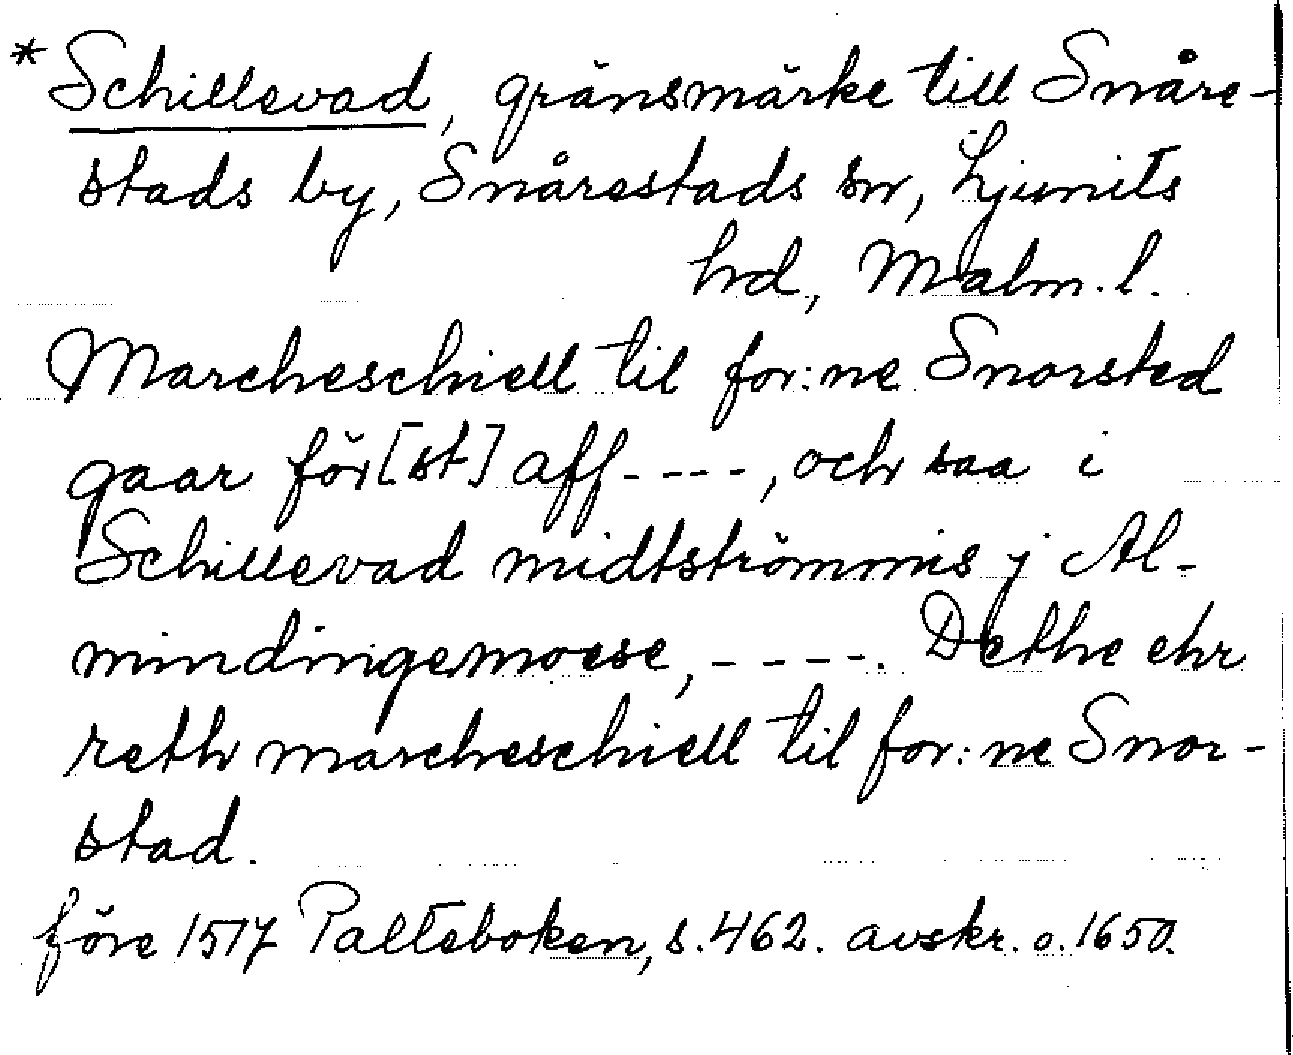 * Schillevad, gränsmärke till Snåre-
stads by, Snårestads sn, Ljunits
hd, Malm. l.
Marcheschiell til for:ne Snorsted
gaar för[st] aff - - - -, och saa i
Schillevad midtströmmis j Al-
mindingemoese, - - - -. Dethe ehr
reth marcheschiell til for:ne Snor-
stad.
före 1517 Palteboken, s. 462. avskr. o. 1650.